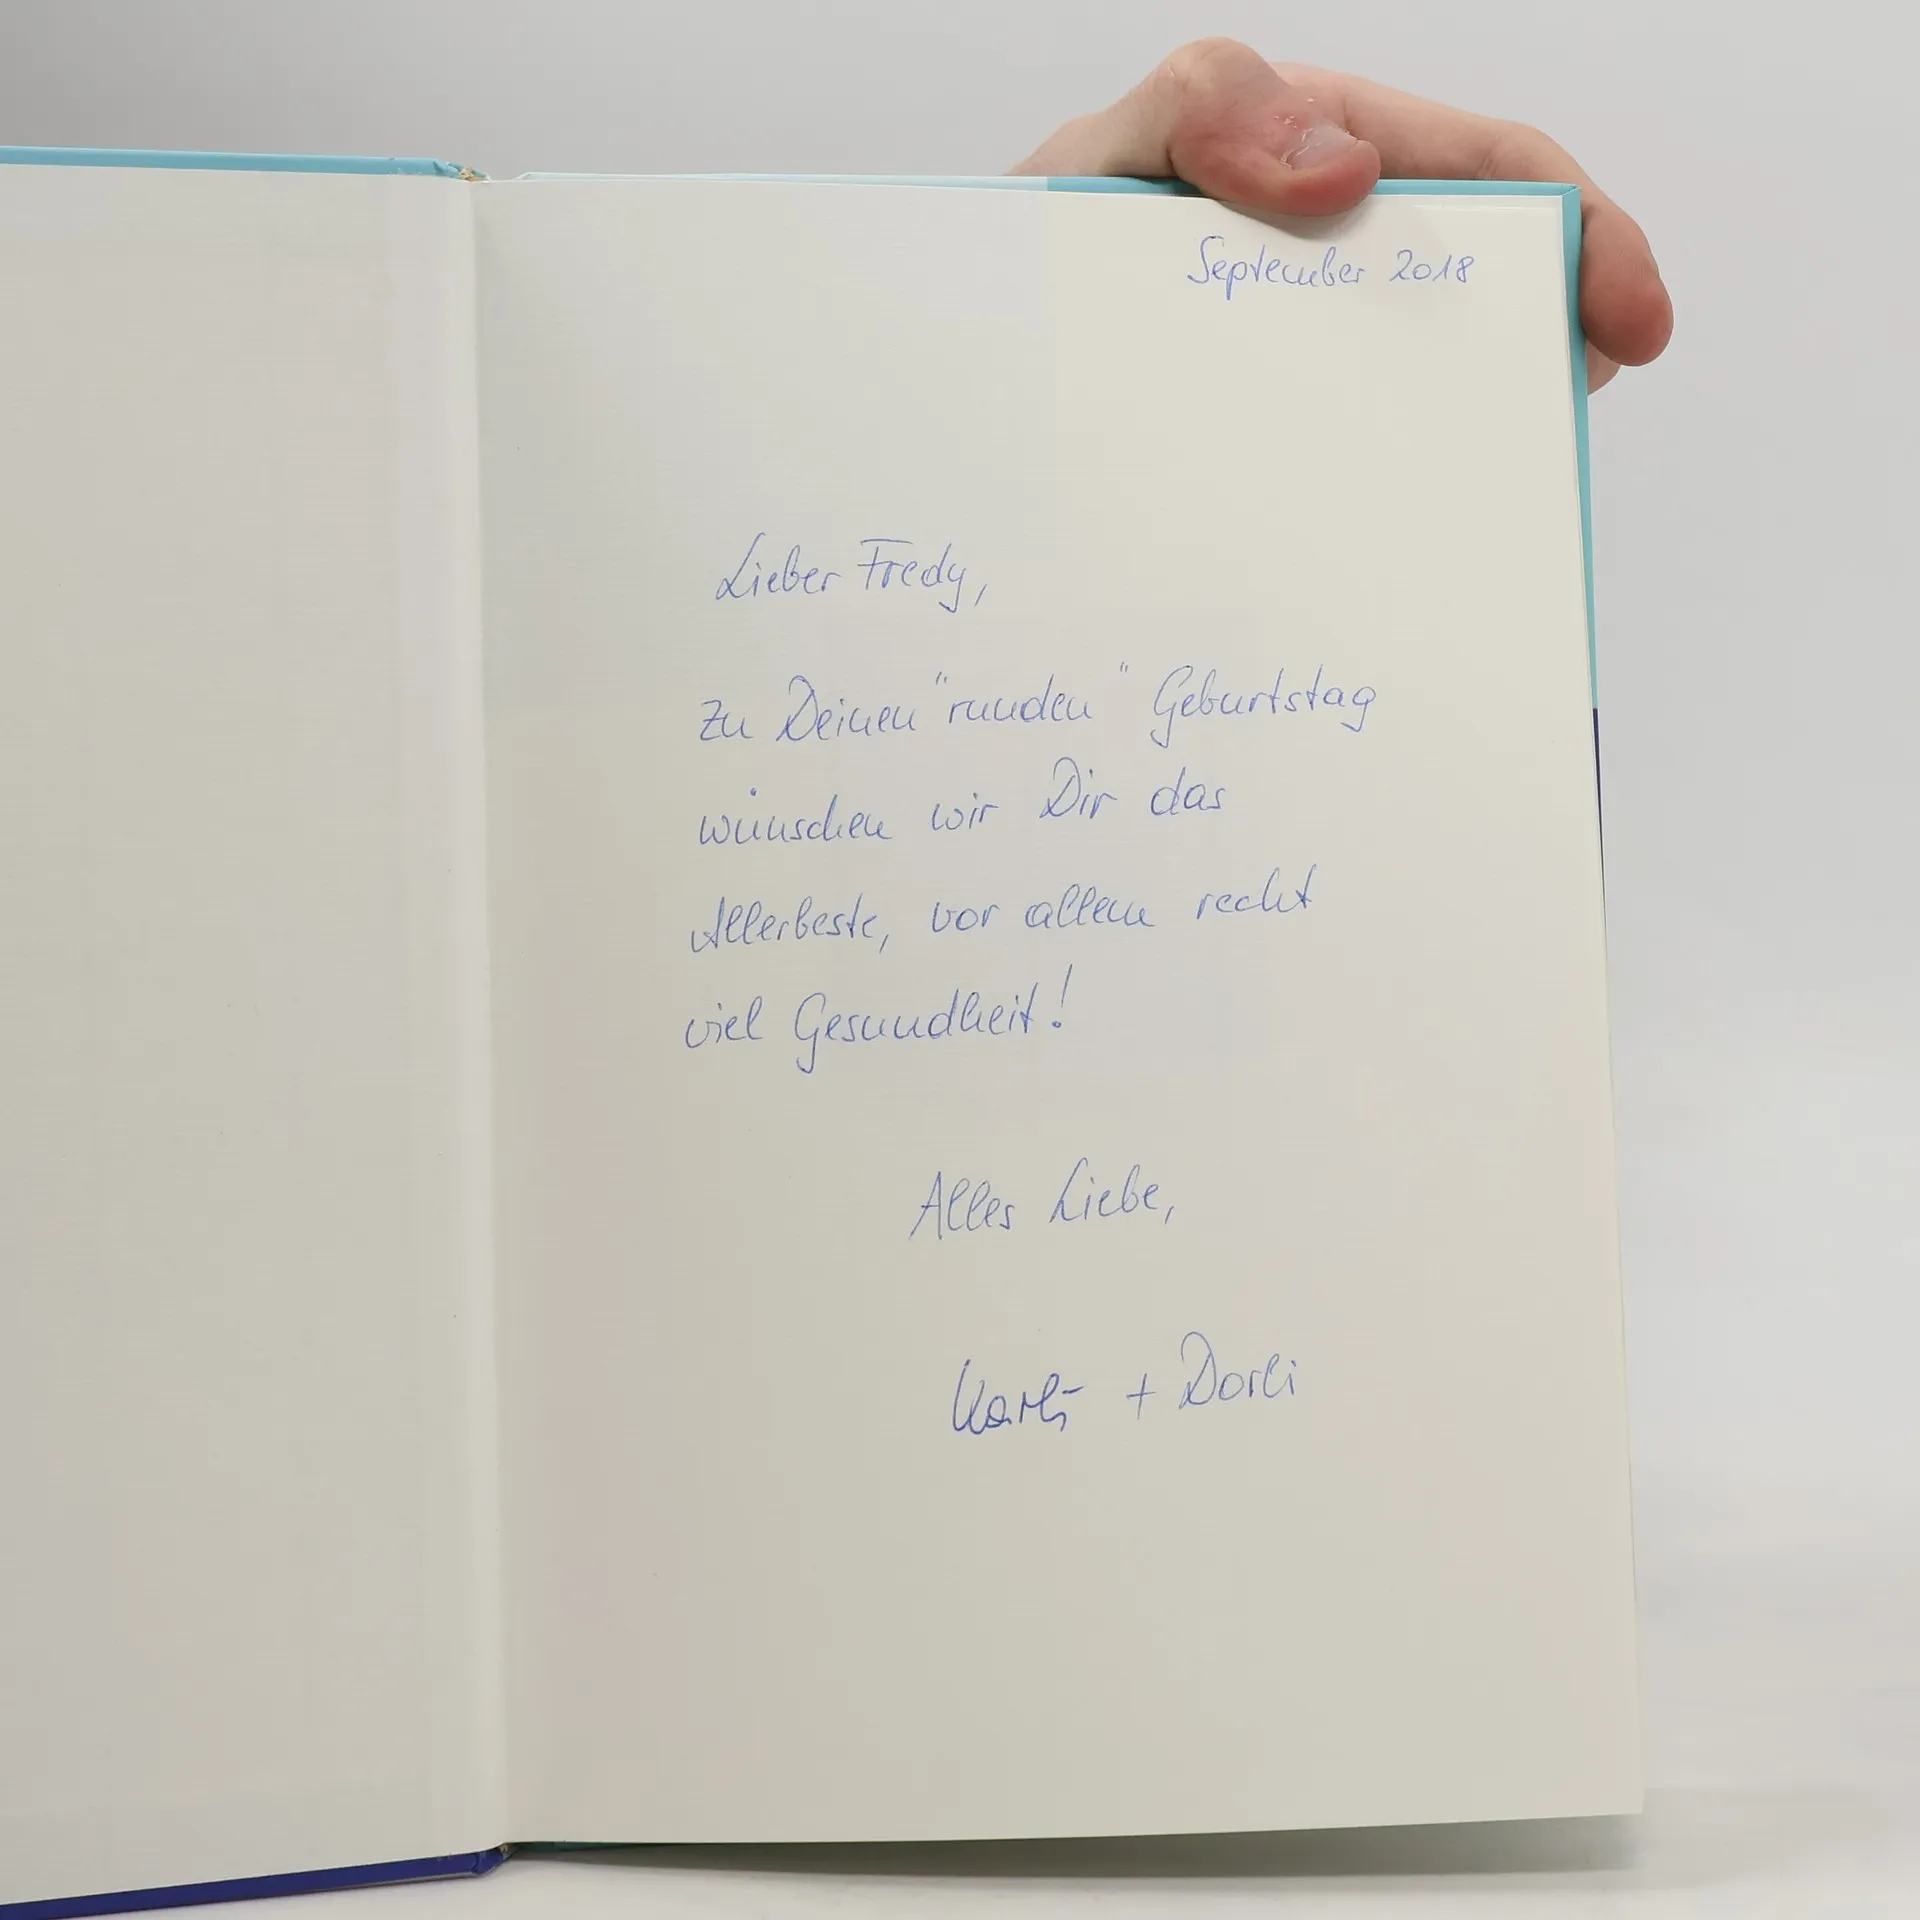 September 2018
Lieber Fredy,
zu Deinen "runden" Geburtstag
wünschen wir Dir das
Allerbeste, vor allem recht
viel Gesundheit!
Alles Liebe,
Karli + Dorli